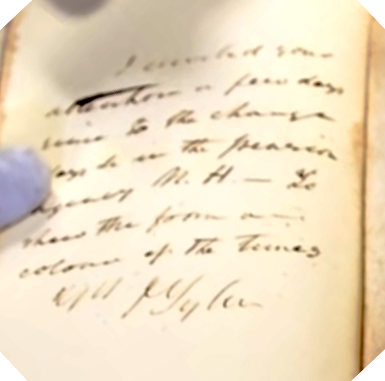 I         your
attention a few days
since to the change
        in the Pension
Agency N. H. — To
shew the form and
colour of the times
        J Tyler